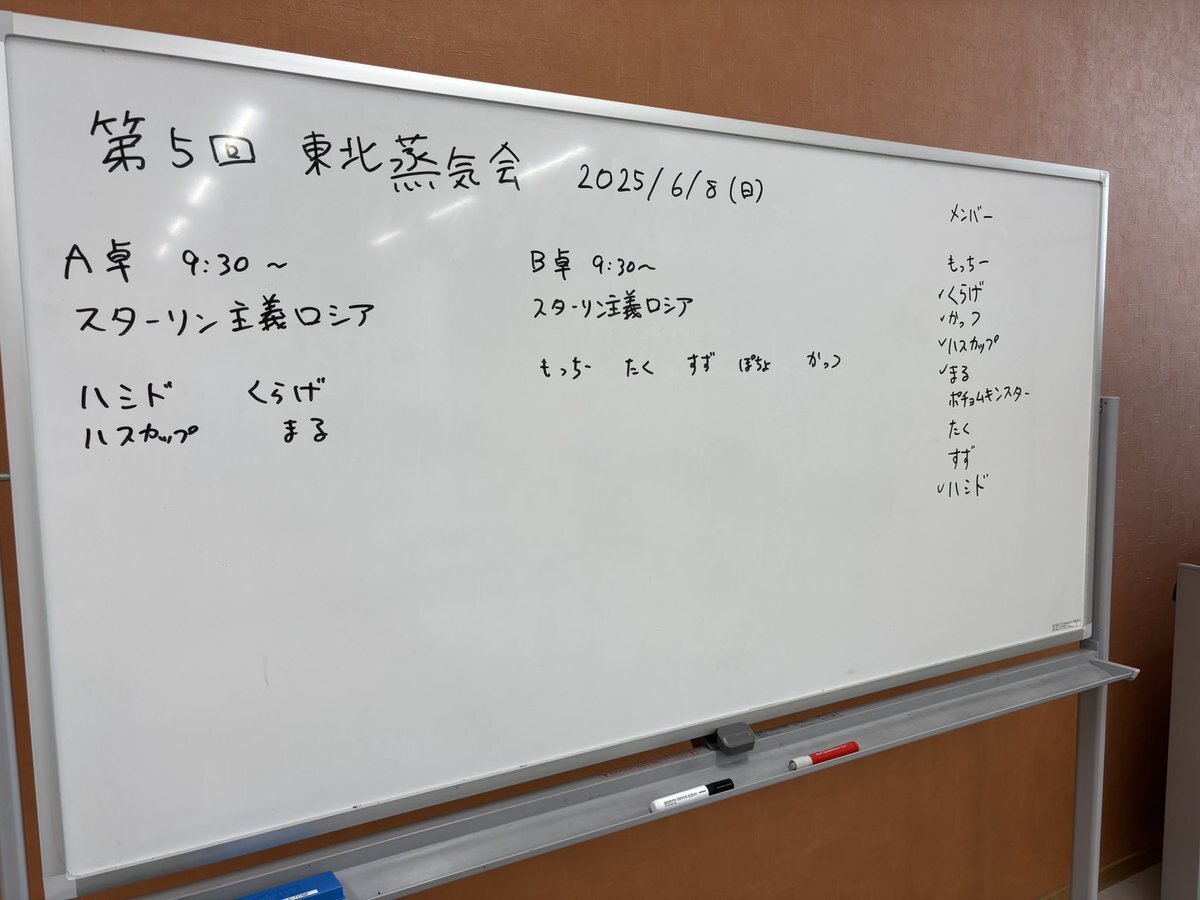 第5回 東北蒸気会 2025/6/8(日)
A卓 9:30～
スターリン主義ロシア
ハミド くらげ
ハスカップ まる
B卓 9:30～
スターリン主義ロシア
もっちー たく すず ぽちょ かっつ
メンバー
もっちー
✓くらげ
✓かっつ
✓ハスカップ
✓まる
ポチョムキンスター
たく
すず
✓ハミド